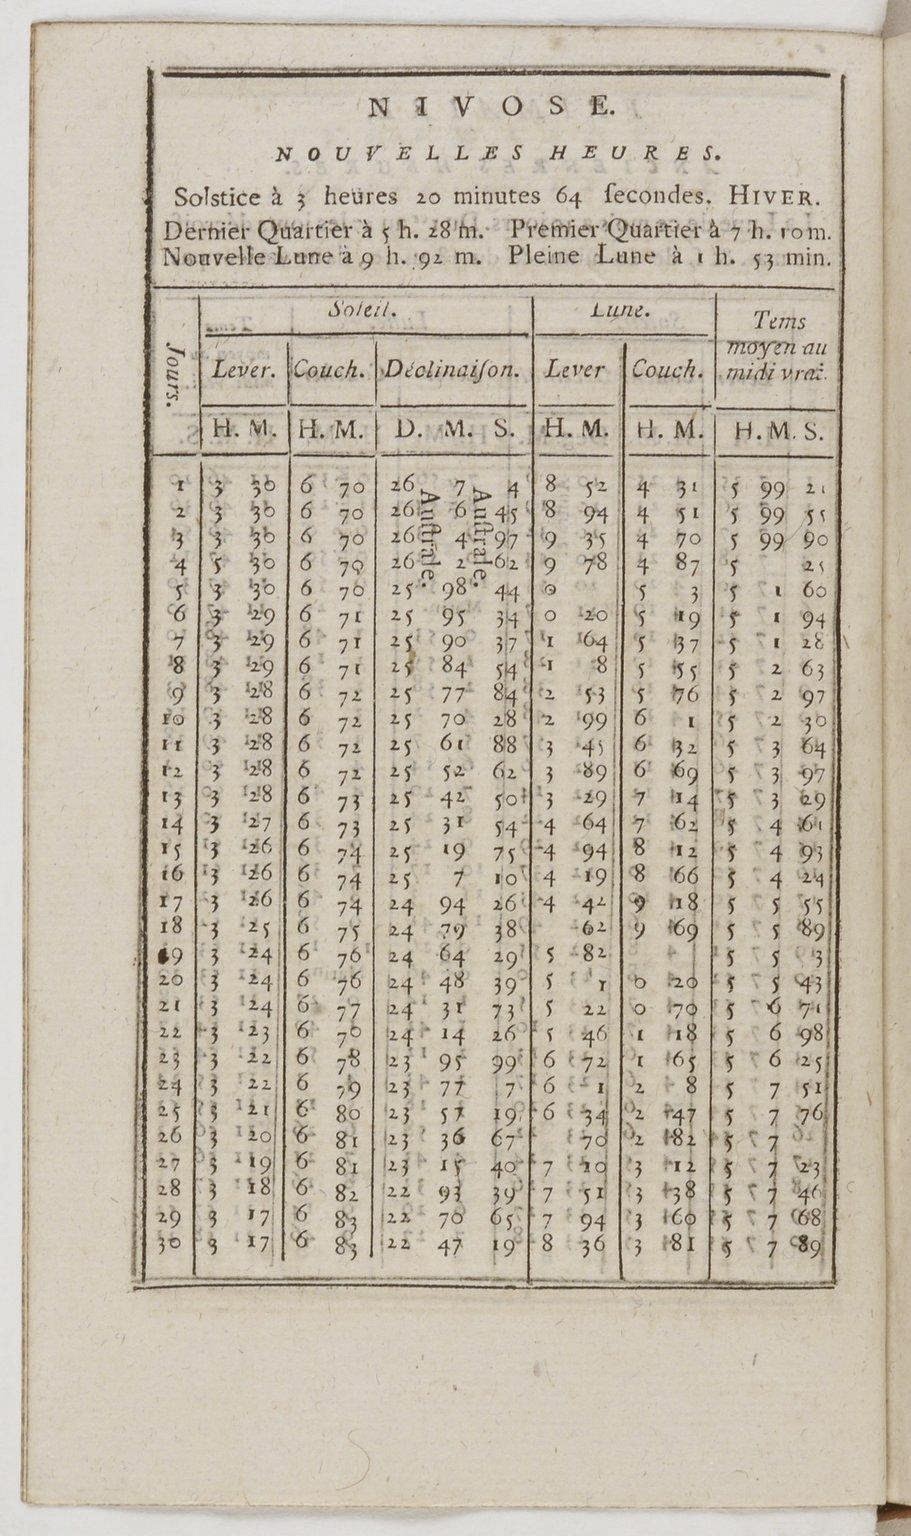 NIVOSE.
NOUVELLES HEURES.
Solstice à 3 heures 20 minutes 64 ſecondes. HIVER.
Dernier Quartier à 5 h. 28 m. Premier Quartier à 7 h. 10 m.
Nouvelle Lune à 9 h. 92 m. Pleine Lune à 1 h. 53 min.
Jours. Soleil. Lune. Tems
moyen au
Lever. Couch. Déclinaiſon. Lever Couch. midi vrai.
H. M. H. M. D. M. S. H. M. H. M. H. M. S.
Auſtrale. Auſtrale.
1 3 30 6 70 26 7 4 8 52 4 31 5 99 21
2 3 30 6 70 26 6 45 8 94 4 51 5 99 55
3 3 30 6 70 26 4 97 9 35 4 70 5 99 90
4 5 30 6 70 26 2 62 9 78 4 87 5 25
5 3 30 6 70 25 98 44 0 5 3 5 1 60
6 3 29 6 71 25 95 34 0 20 5 19 5 1 94
7 3 29 6 71 25 90 37 1 64 5 37 5 1 28
8 3 29 6 71 25 84 54 1 8 5 55 5 2 63
9 3 28 6 72 25 77 84 2 53 5 76 5 2 97
10 3 28 6 72 25 70 28 2 99 6 1 5 2 30
11 3 28 6 72 25 61 88 3 45 6 32 5 3 64
12 3 28 6 72 25 52 62 3 89 6 69 5 3 97
13 3 28 6 73 25 42 50 3 29 7 14 5 3 29
14 3 27 6 73 25 31 54 4 64 7 62 5 4 61
15 3 26 6 74 25 19 75 4 94 8 12 5 4 93
16 3 26 6 74 25 7 10 4 19 8 66 5 4 24
17 3 26 6 74 24 94 26 4 42 9 18 5 5 55
18 3 25 6 75 24 79 38 62 9 69 5 5 89
19 3 24 6 76 24 64 29 5 82 5 5 3
20 3 24 6 76 24 48 39 5 1 0 20 5 5 43
21 3 24 6 77 24 31 73 5 22 0 70 5 6 71
22 3 23 6 70 24 14 26 5 46 1 18 5 6 98
23 3 22 6 78 23 95 99 6 72 1 65 5 6 25
24 3 22 6 79 23 77 7 6 1 2 8 5 7 51
25 3 21 6 80 23 57 19 6 34 2 47 5 7 76
26 3 20 6 81 23 36 67 70 2 82 5 7
27 3 19 6 81 23 15 40 7 10 3 12 5 7 23
28 3 18 6 82 22 93 39 7 51 3 38 5 7 46
29 3 17 6 83 22 70 65 7 94 3 60 5 7 68
30 3 17 6 83 22 47 19 8 36 3 81 5 7 89